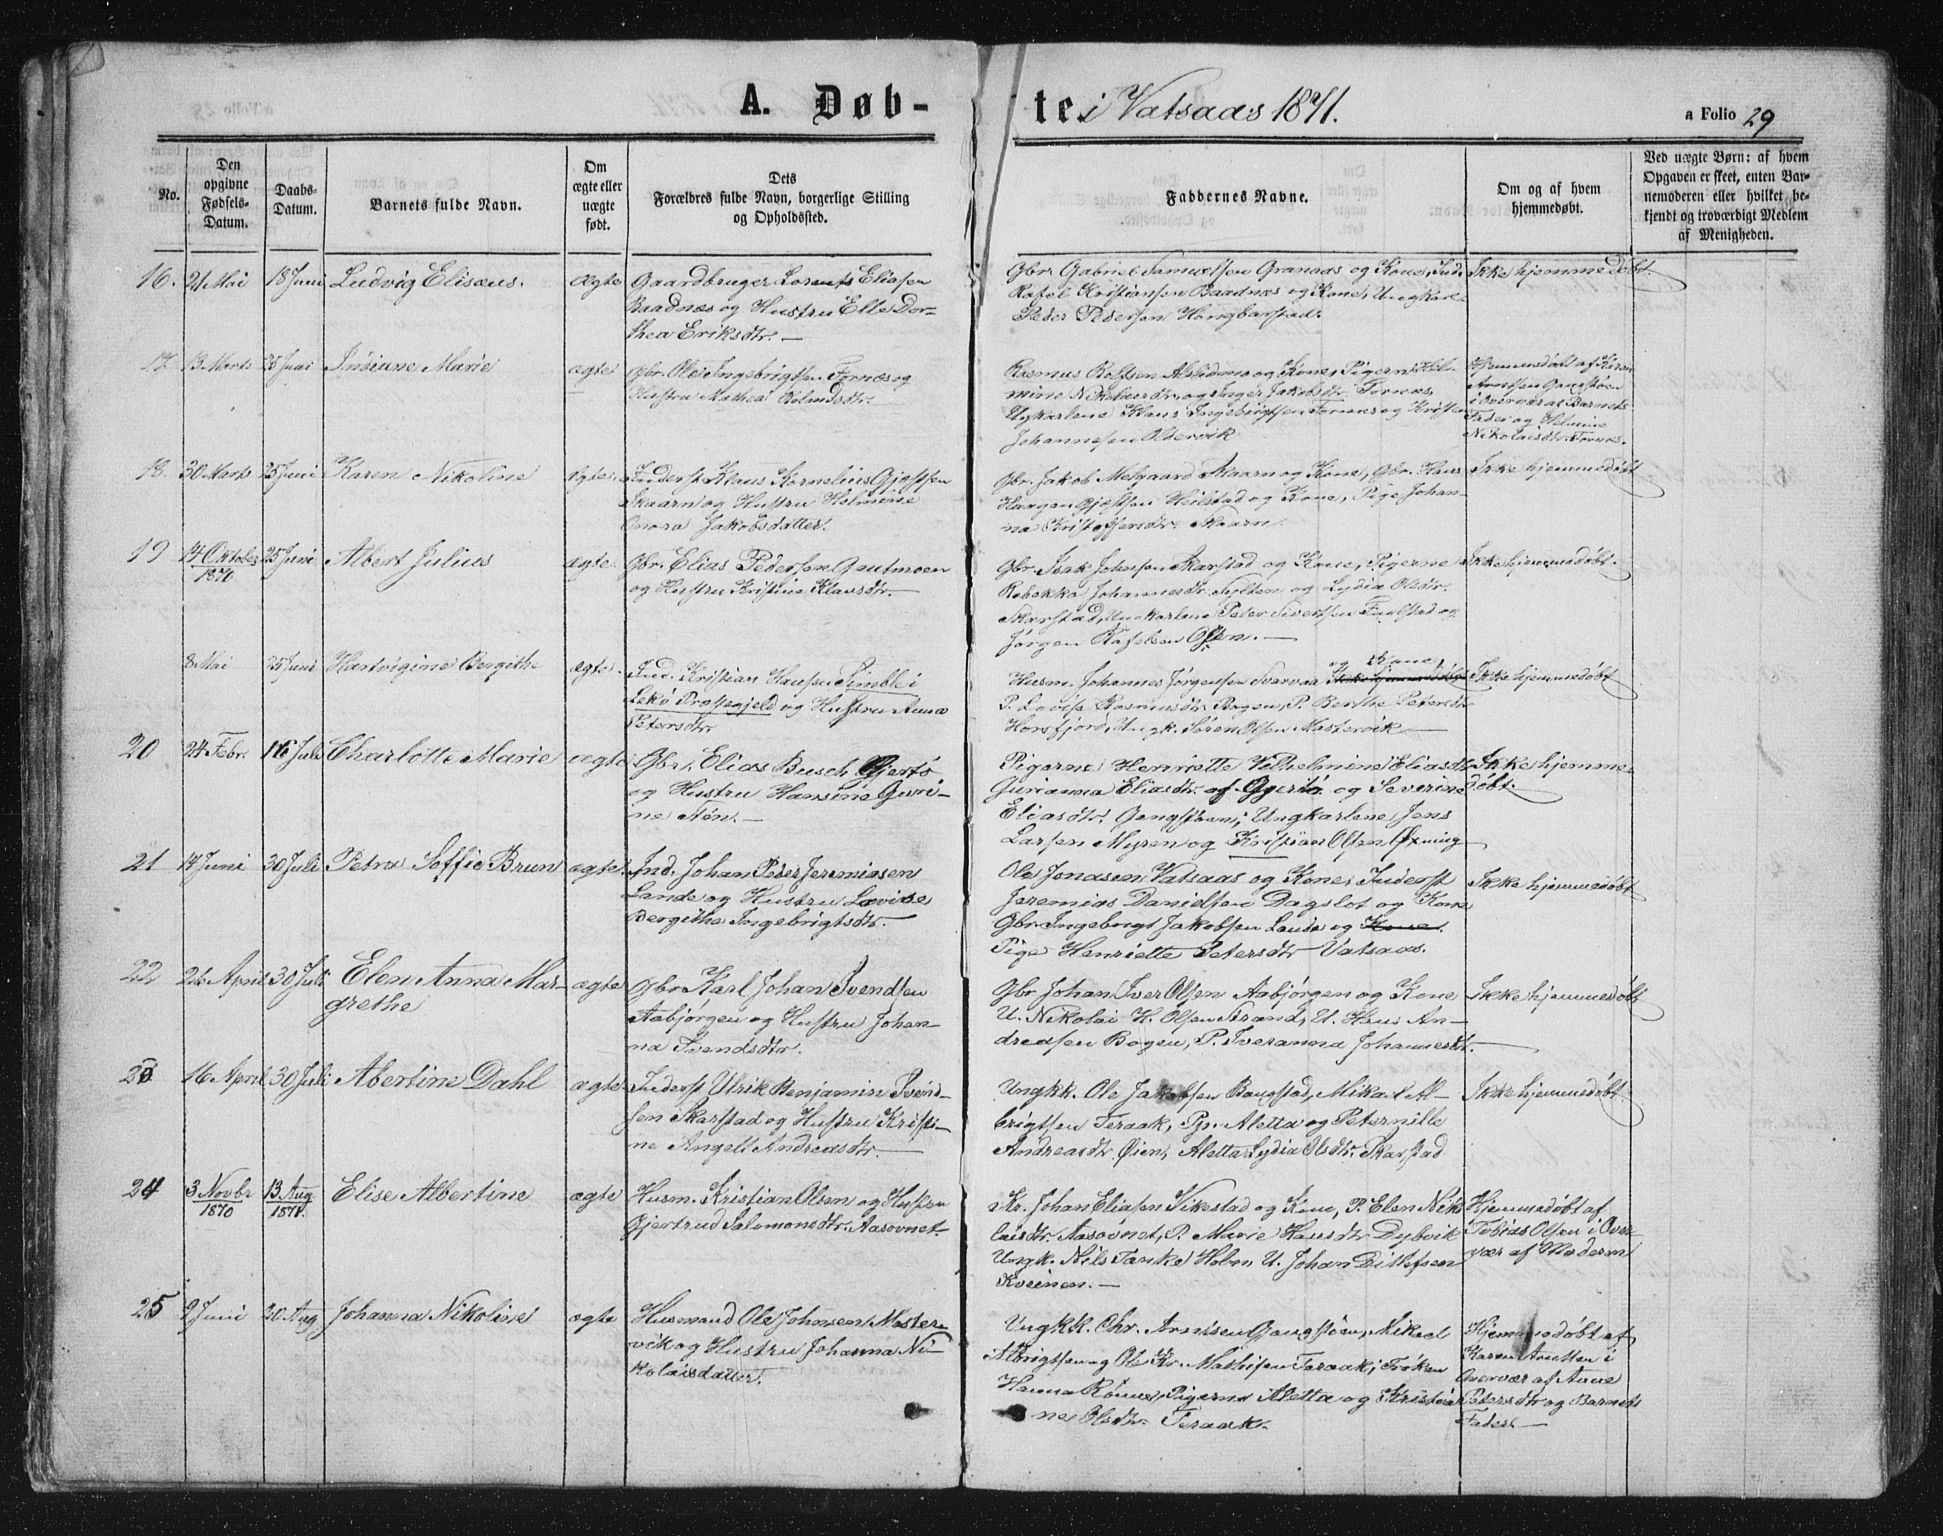 A. Døb-
te i Vatsaas 1871.
a Folio 29
No.
Den opgivne Fødsels-Datum.
Daabs-Datum.
Barnets fulde Navn.
Om ægte eller uægte født.
Dets Forældres fulde Navn, borgerlige Stilling og Opholdssted.
Faddernes Navne.
Om og af hvem hjemmedøbt.
Ved uægte Børn: af hvem Opgaven er skeet, enten Barnemoderen eller hvilket bekjendt og troværdigt Medlem af Menigheden.
16. 21 Mai 18 Juni Ludvig Elisæus. Ægte
Gaardbruger Lorents Eliasen
Baadnæs og Hustru Elle Dor-
thea Eriksdtr. —
Gbr. Gabriel Samuelsen Granaas og Kone, Ind.
Rafel Kristiansen Baadnæs og Kone, Ungkarl
Peder Pedersen
Ikke hjemmedøbt.
17. 13 Marts 25 Juni Marie ægte
Gbr. Ole Ingebrigtsen Fornæs og
Hustru Mathea
Rasmus Rolfsen og Kone, Pigerne Hel-
mine Nikolaisdtr. og Inger Jakobsdtr. Fornæs,
Ungkarlene Klaus Ingebrigtsen Fornæs og Kristen
Johannesen Oldervik
Hjemmedøbt af
Arntsen Gangstøen
i Overvær af Barnets
Fader og Helmine
Nikolaisdtr. Fornæs.
18. 30 Marts 25 Juni Karen Nikoline Ægte.
Inderst Klaus Kornelius Gjøstsen
Skaarn og Hustru Holmine
Onora Jakobsdatter.
Gbr. Jakob Melgaard Skaarn og Kone, Gbr. Hans
Haagen Gjøstsen Heilstad og Kone, Pige Johan-
na Kristoffersdtr. Skaarn.
Ikke hjemmedøbt
19 14 Oktober 1870 25 Juni Albert Julius ægte.
Gbr. Elias Pedersen Gautmoen
og Hustru Kristine Klausdtr. —
Gbr. Isak Johnsen Skarstad og Kone, Pigerne
Rebekka Johannesdtr. Sylten og Lydia Olsdtr.
Skarstad, Ungkarlene Peter Sivertsen Fuglstad og
Jørgen Rafelsen Olsen. —
Ikke hjemmedøbt.
8 Mai 25 Juni Hartvigine Bergithe ægte.
Ind. Kristian Hansen Simble i
Lekø Præstegjeld og Hustru Anna
Petersdtr.
og Kone,
Husm. Johannes Jørgensen Svarvaa Ikke hjemmedøbt
P. Lovise Rasmusdtr. Bogen, P. Berthe Petersdtr
Horsfjord, Ungk. Søren Olsen Mastervik
Ikke hjemmedøbt
20 24 Febr. 16 Juli Charlotte Marie ægte
Gbr. Elias Busch Gjerø
og Hustru Hansine Guri-
ne
Pigerne Henriette Vilhelmine Eliasdtr
Gurianna Eliasdtr. af Gjerø og Severine
Eliasdtr. Gangstøen, Ungkarlene Jens
Larsen Myren og Kristian Olsen Øxning
Ikke hjemme-
døbt.
21 17 Juni 30 Juli Petra Soffie Brun ægte.
Ind. Johan Peder Jeremiasen
Lande og Hustru Lovise
Bergithe Ingebrigtsdtr.
Ole Jonasen Vatsaas og Kone, Inderst
Jeremias Danielsen Dagslot og Kone
Gbr. Ingebrigt Jakobsen Lande og Kone,
Pige Henriette Petersdtr Vatsaas.
Ikke hjemmedøbt
22 26 April 30 Juli Elen Anna Mar-
grethe ægte
Gbr Karl Johan Svendsen
Aabjørgen og Hustru Johan-
na Svendsdtr.
Gbr Johan Iver Olsen Aabjørgen og Kone
U. Nikolai H. Olsen Strand, U. Hans An-
dreasen Bogen, P. Iveranna Johannesdtr.
Ikke hjemmedøbt
23 16 April 30 Juli Abertine Dahl ægte
Inderst Ulrik Benjamin Svend-
sen Skarstad og Hustru Kristi-
ne Angell Andreasdtr.
Ungkk. Ole Jakobsen Bangstad, Mikael Al-
brigtsen Teraak, Pgr. Aletta og Peternille
Andreasdtr. Øien, Aletta Lydia Olsdtr. Skarstad
Ikke hjemmedøbt
24 3 Novbr 1870 13 Aug 1871. Elise Albertine ægte
Husm. Kristian Olsen og Hustru
Gjertrud Salomonsdtr. Aasovnet.
Kr. Johan Eliasen Vikestad og Kone, P. Elen Niko-
laisdtr. Aasovnet, P. Marie Hansdtr Dybvik
Ungk. Nils Tanke Holm, U. Johan Ditlefsen
Kveinen. —
Hjemmedøbt af
Tobias Olsen i Over-
vær af Moderen
25 9 Juni 20 Aug Johanna Nikoline ægte
Husmand Ole Johnsen Master-
vik og Hustru Johanna Ni-
kolaisdatter.
Ungkk. Chr. Arntsen Gangstøen, Mikael
Albrigtsen og Ole Kr. Mathisen Teraak, Frøken
Hanna Rønne, Pigerne Aletta og Kristia-
ne Olsdtr. Teraak.
Hjemmedøbt af
Karen Arntsen i
Overvær af Anne
Petersdtr og Barnets
Fader